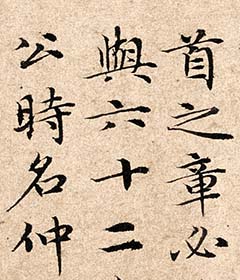 首之章必
與六十二
公時名仲